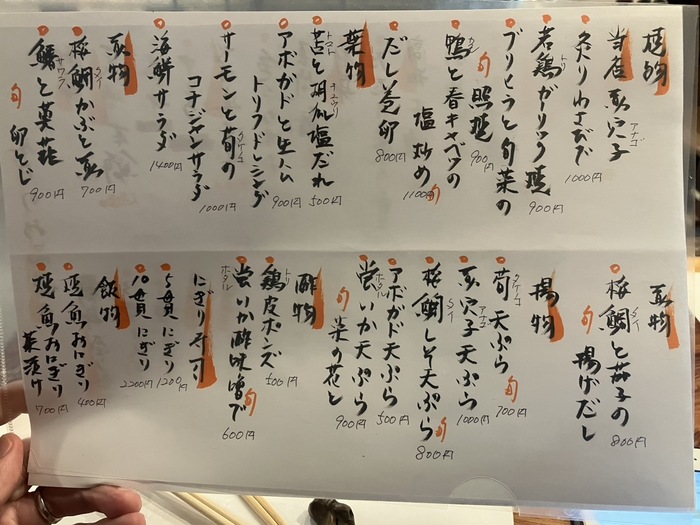 焼物
当店煮穴子
アナゴ
炙りわさびで
1000円
若鶏ガーリック焼
トリ
900円
ブリヒラと旬菜の
旬 照焼
900円
鴨と春キャベツの
カモ
塩炒め 旬
1100円
だし巻卵
800円
菜物
と胡瓜塩だれ
トマト キュウリ
500円
アボガドと生ハム
900円
トリフドレシング
サーモンと筍の
タケノコ
コチジャンサラダ
1000円
海鮮サラダ
1400円
煮物
桜鯛かぶと煮
タイ
700円
鰆と黄韮
サワラ
旬 卵とじ
900円
煮物
桜鯛と茄子の
タイ
800円
旬 揚げだし
揚物
筍天ぷら 旬
タケノコ
700円
煮穴子天ぷら
アナゴ
1000円
桜鯛しそ天ぷら 旬
タイ
800円
アボガド天ぷら
500円
蛍いか天ぷら
ホタル
旬 菜の花と
900円
酢物
鶏皮ポンズ
トリ
500円
蛍いか酢味噌で 旬
ホタル
600円
にぎり寿司
5貫にぎり
1200円
10貫にぎり
2200円
飯物
焼魚おにぎり
400円
焼魚おにぎり
茶漬け
700円